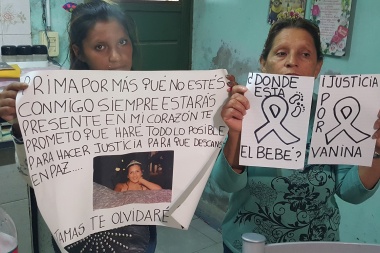 PRIMA POR MÁS QUE NO ESTÉS
CONMIGO SIEMPRE ESTARÁS
PRESENTE EN MI CORAZÓN TE
PROMETO QUE HARE TODO LO POSIBLE
PARA HACER JUSTICIA PARA QUE DESCANS
EN PAZ....
JAMAS TE OLVIDARÉ
¿DONDE
ESTÁ
EL BEBÉ?
¡JUSTICIA
POR
VANINA